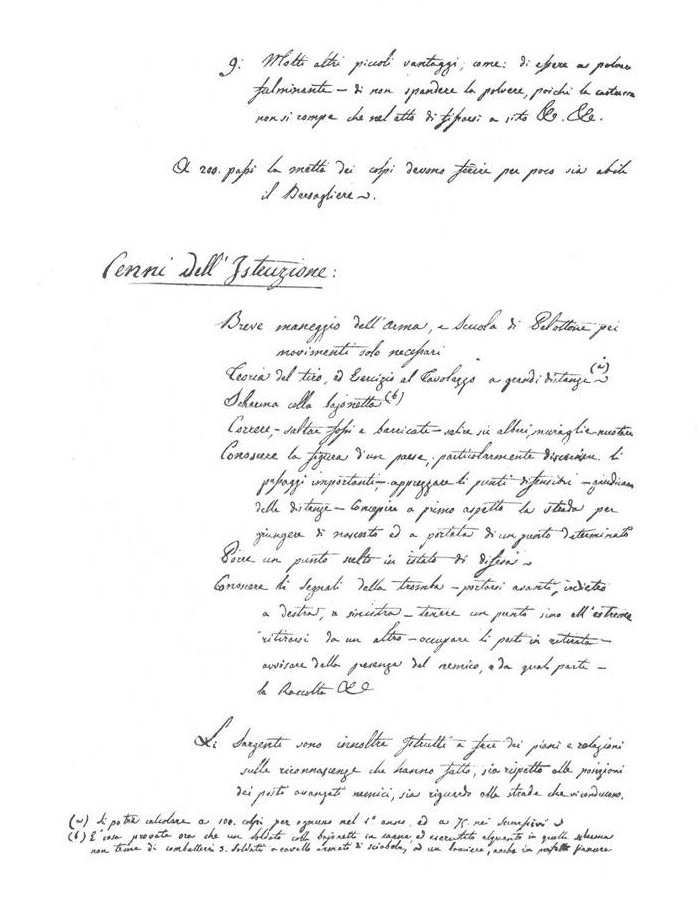 9: Molti altri piccoli vantaggi, come: di essere a polvere
fulminante – di non spandere la polvere, poichè la cartuccia
non si rompe che nel atto di fissarsi a sito &c. &c.
A 200. passi la metta dei colpi devono ferire per poco sia abile
il Bersagliere.
Cenni dell'Istruzione:
Breve maneggio dell'arma, e Scuola di Pelottone pei
movimenti solo necessari
Teoria del tiro, ed Esercizio al Tavolazzo a grandi distanze (a)
Scherma colla bajonetta (b)
Correre, – saltar fossi e barricate – salire su alberi, muraglie – nuotare
Conoscere la figura d'un paese, particolarmente discernere li
passaggi importanti – apprezzare li punti difensibili – giudicare
delle distanze – Concepire a primo aspetto la strada per
giungere di nascosto ed a portata di un punto determinato
Porre un punto scelto in istato di difesa
Conoscere li segnali della tromba – portarsi avanti, indietro
a destra, a sinistra – tenere un punto sino all'estremo
ritirarsi da un altro – occupare li posti in ritirata –
avvisare della presenza del nemico, e da qual parte –
la Raccolta &c
Li Sargenti sono innoltre Istrutti a fare dei piani e relazioni
sulle riconnascenze che hanno fatto, sia rispetto alle posizioni
dei posti avanzati nemici, sia riguardo alle strade che vi conducono.
(a) Si potrà calcolare a 100. colpi per ognuno nel 1° anno, ed a 75. nei successivi
(b) E' cosa provata ora che un Soldato colla bajonetta in canna ed esercitato alquanto in quella scherma
non teme di combattersi 3. Soldati a cavallo armati di sciabola, od un lanciere, anche in perfetta pianura